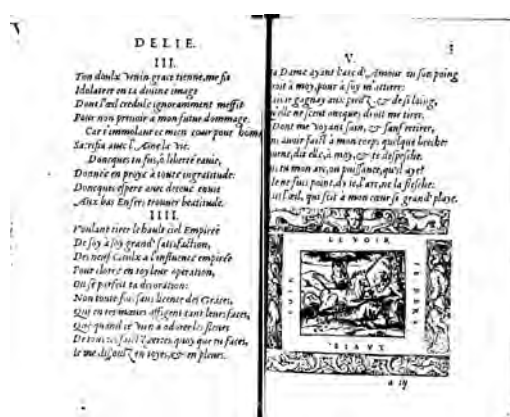 DELIE.
III.
Ton doulx venin, grace tienne, me fit
Idolatrer en ta divine image
Dont l'œil credule ignoramment meffit
Pour non preuoir a mon futur dommage.
Car t'immolant ce mien cœur pour homa
Sacrifia auec l'Ame la vie.
Doncques tu fus, ô liberté rauie,
Donnée en proye à toute ingratitude:
Doncques espere auec deceue enuie
Aux bas Enfers trouuer beatitude.
IIII.
Voulant tirer le hault ciel Empirée
De soy à soy grand' satisfaction,
Des neuf Cieulx à l'influence empirée
Pour clorre en toy leur operation,
Ou se parfeit ta decoration:
Non toutefois sans licence des Graces,
Qui en tes mœurs affigent tant leurs faces,
Que quand ie vien a odorer les fleurs
De tous tes faictz, certes, quoy que tu faces,
Ie me dissoulz en ioyes, & en pleurs.
3
V.
a Dame ayant l'arc d'Amour en son poing
roit à moy, pour à soy m'attirer:
gaignay aux piedz, & de si loing,
elle ne sceut oncques droit me tirer.
Dont me voyant sain, & sans retirer,
auoir faict à mon corps quelque breche:
ourne, dit elle, à moy, & te despesche.
tu mon arc, ou puissance, qu'il ayt
Ie ne fuis point, dy ie, l'arc, ne la flesche:
l'œil, qui feit à mon cœur si grand' playe.
LE VOIR
IE PERS
VIE
a iij